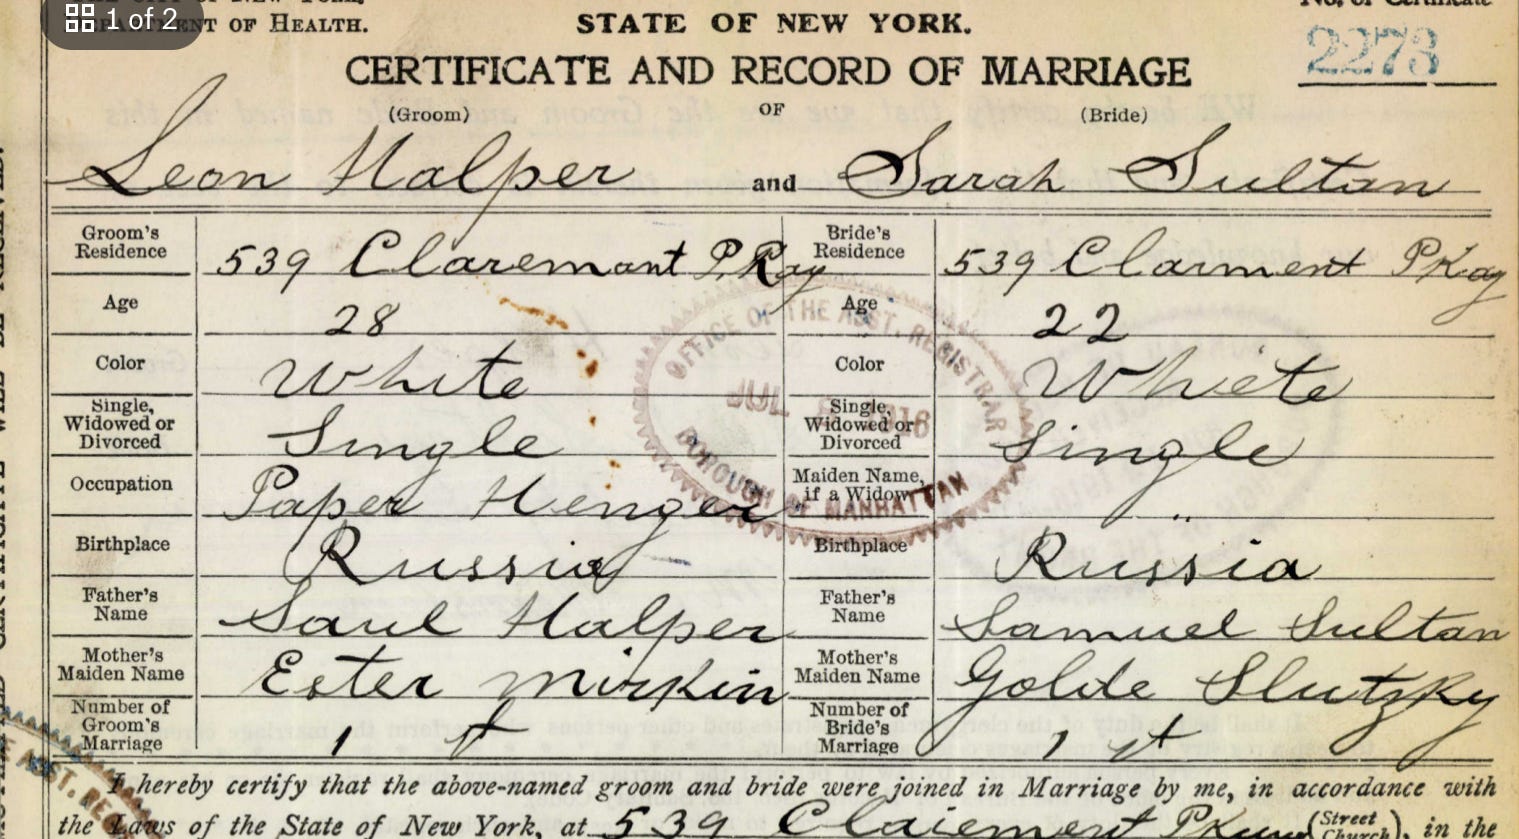 1 of 2
DEPARTMENT OF HEALTH.
STATE OF NEW YORK.
No. of Certificate
2273
CERTIFICATE AND RECORD OF MARRIAGE
(Groom) OF (Bride)
Leon Halper and Sarah Sultan
Groom's Residence 539 Claremont PKay Bride's Residence 539 Clarment PKay
Age 28 Age 22
Color White Color White
Single, Widowed or Divorced Single Single, Widowed or Divorced Single
Occupation Paper Henger Maiden Name, if a Widow "
Birthplace Russia Birthplace Russia
Father's Name Saul Halper Father's Name Samuel Sultan
Mother's Maiden Name Ester Mirkin Mother's Maiden Name Golde Slutzky
Number of Groom's Marriage 1 st Number of Bride's Marriage 1 st
OFFICE OF THE ASST. REGISTRAR
JUL 1916
BOROUGH OF MANHATTAN
I hereby certify that the above-named groom and bride were joined in Marriage by me, in accordance with
the Laws of the State of New York, at 539 Claiemont (Street Church), in the